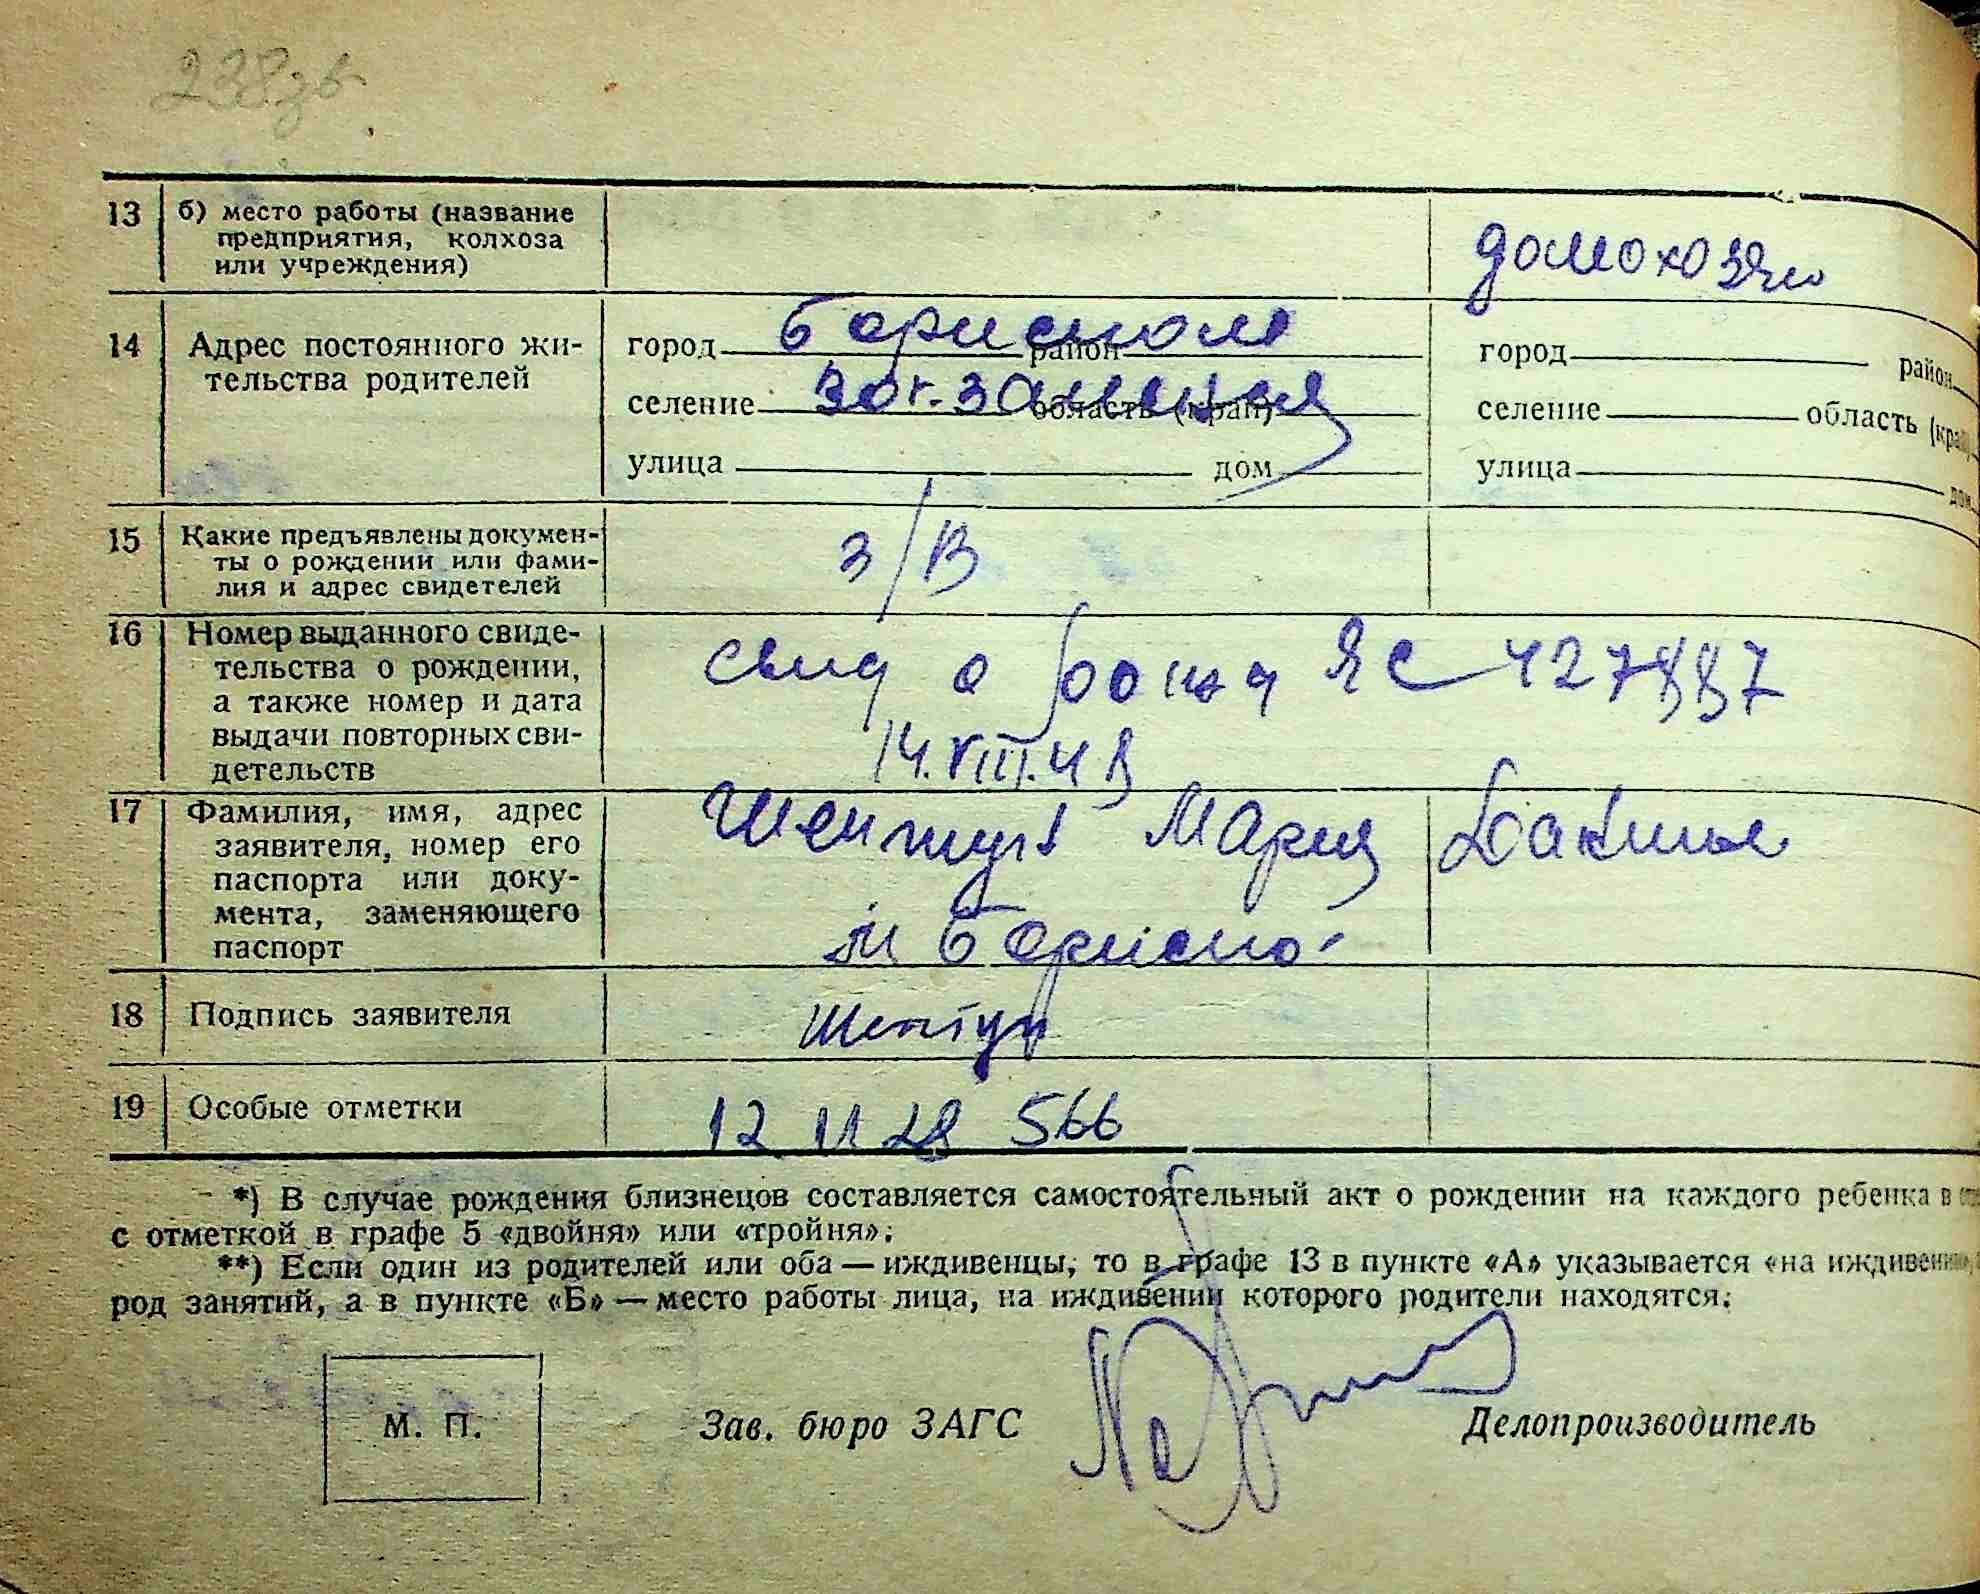 238зв
13 б) место работы (название
предприятия, колхоза
или учреждения)
домохозяй
14 Адрес постоянного жи-
тельства родителей
город Борисполь район
селение область (край)
улица дом
город район
селение область (край
улица дом
15 Какие предъявлены докумен-
ты о рождении или фами-
лия и адрес свидетелей
з/в
16 Номер выданного свиде-
тельства о рождении,
а также номер и дата
выдачи повторных сви-
детельств
свид о рожд ЯС 427887
14.VIII.48
17 Фамилия, имя, адрес
заявителя, номер его
паспорта или доку-
мента, заменяющего
паспорт
Шептун Мария
м Бориспо
18 Подпись заявителя
Шептун
19 Особые отметки
12 11 28 566
*) В случае рождения близнецов составляется самостоятельный акт о рождении на каждого ребенка в
с отметкой в графе 5 «двойня» или «тройня».
**) Если один из родителей или оба — иждивенцы, то в графе 13 в пункте «А» указывается «на иждивении»,
род занятий, а в пункте «Б» — место работы лица, на иждивении которого родители находятся.
М. П.
Зав. бюро ЗАГС
Делопроизводитель